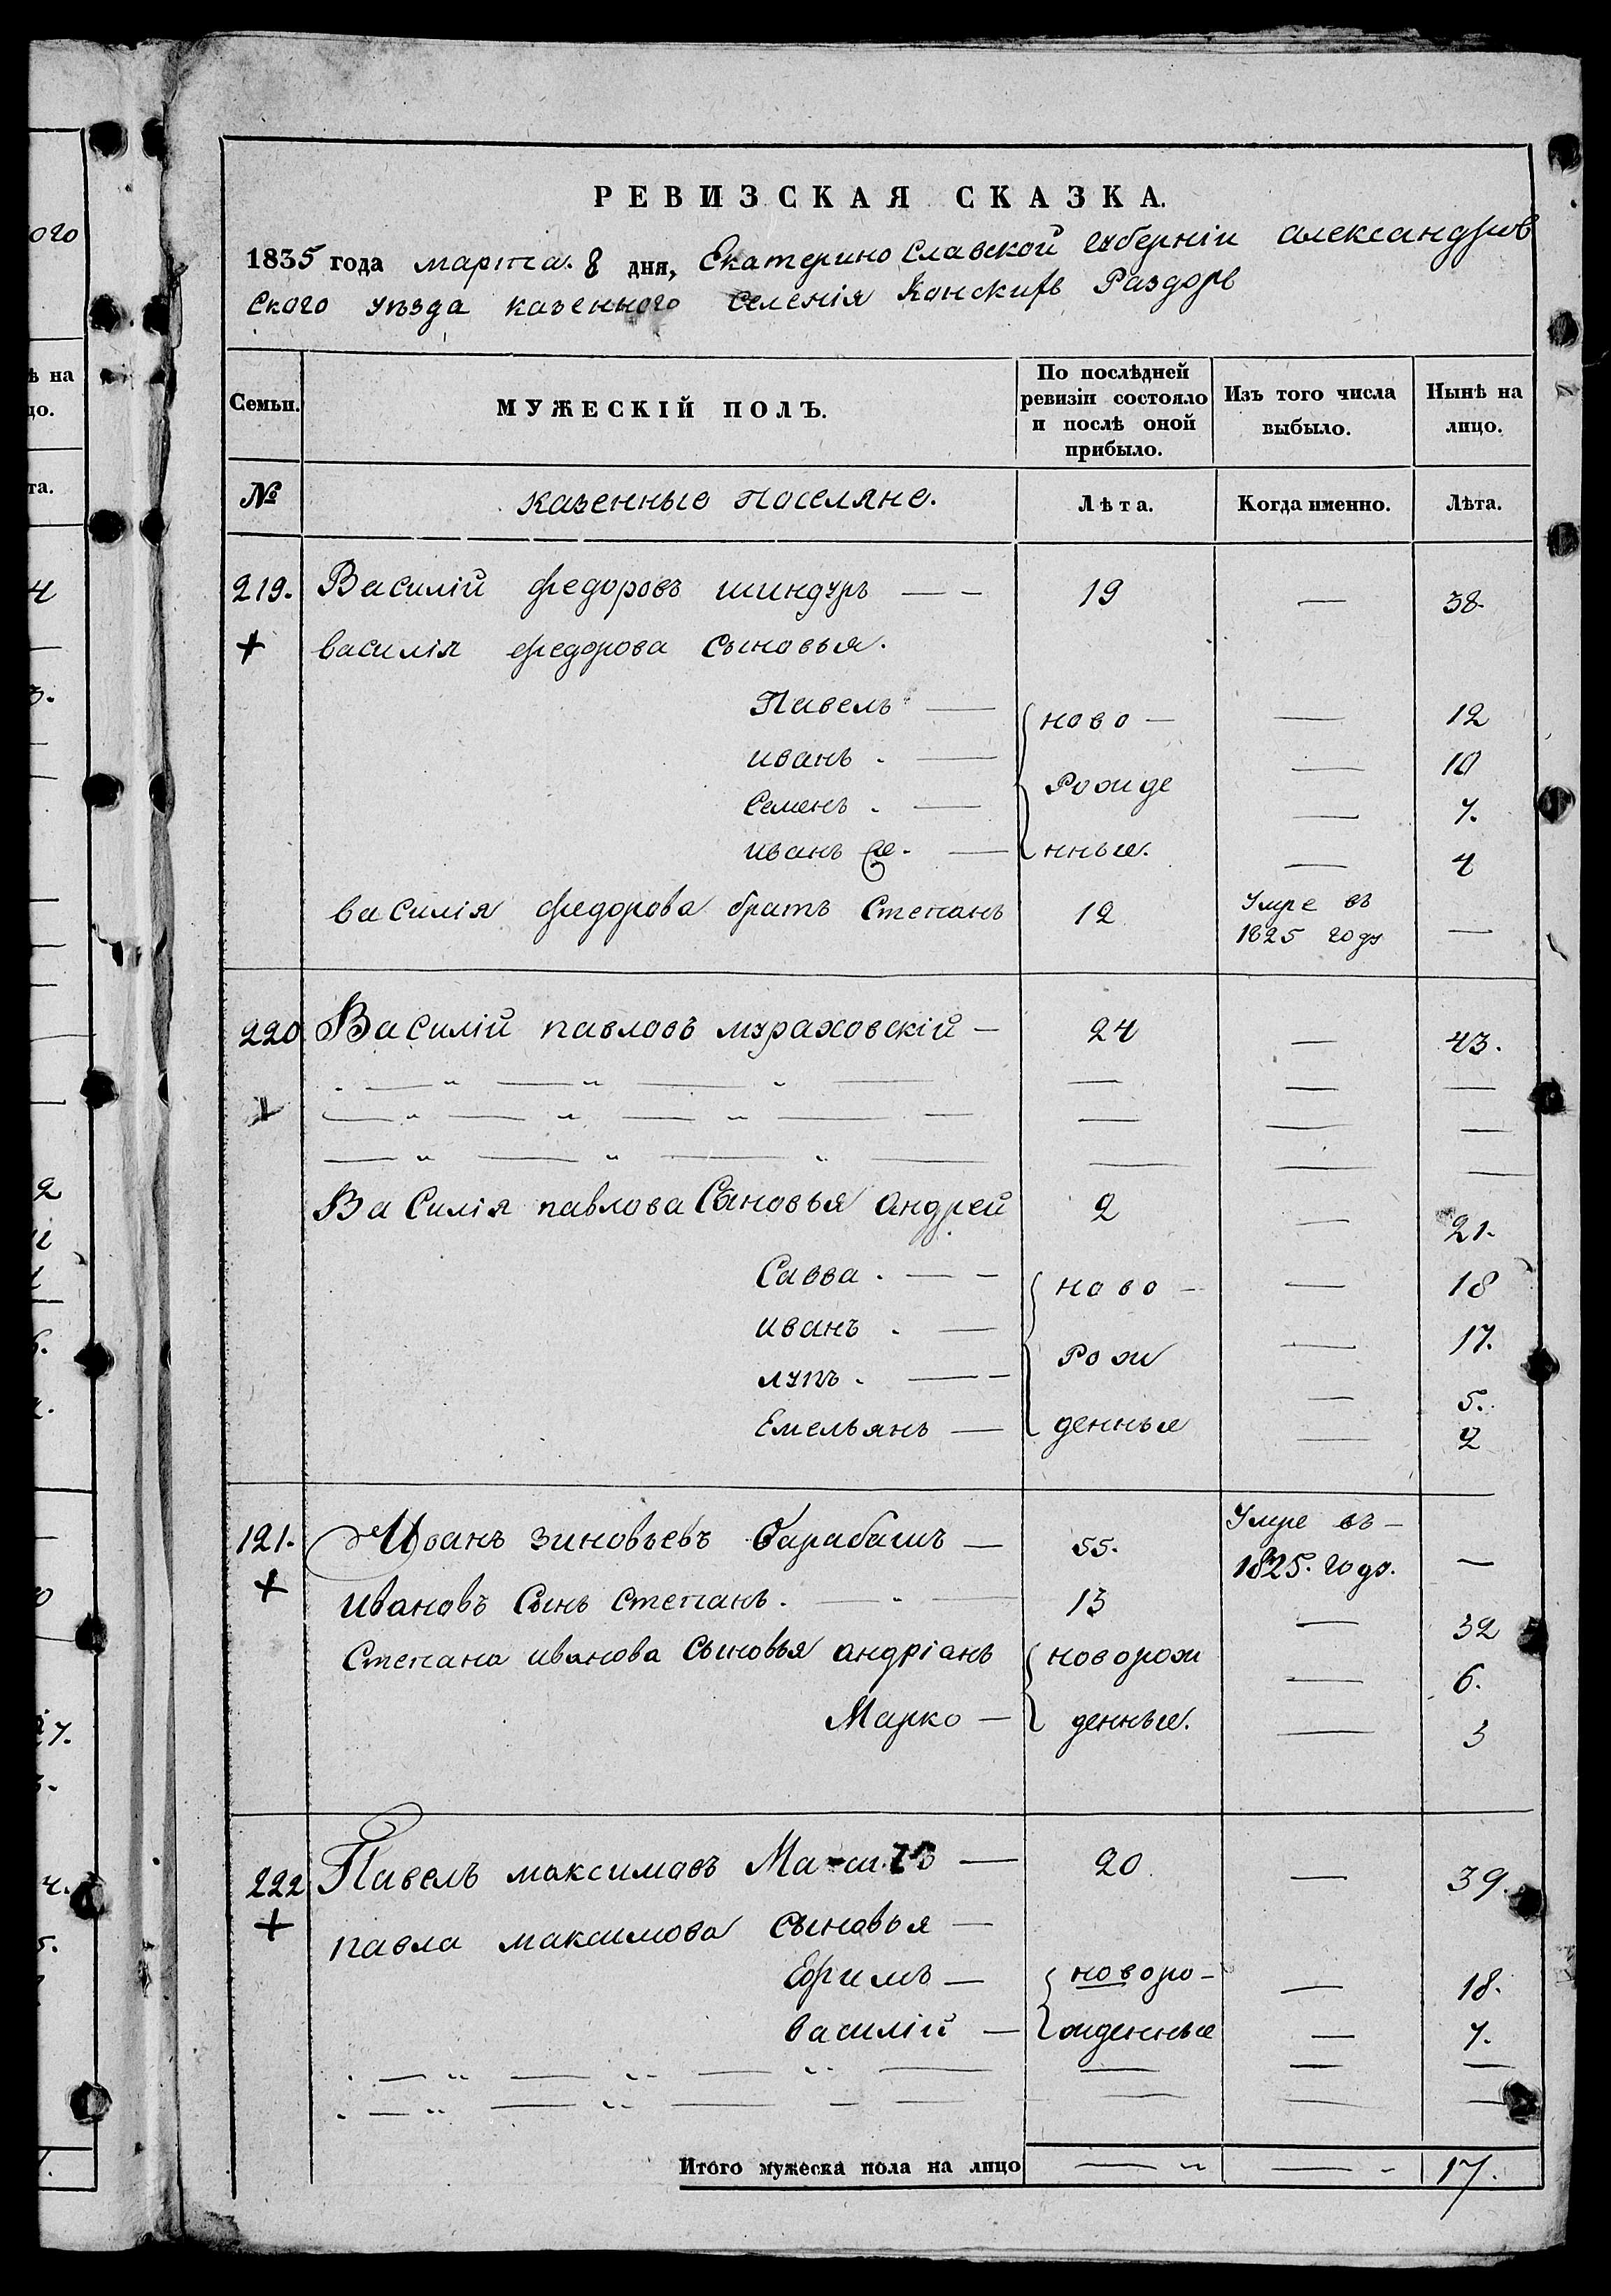 РЕВИЗСКАЯ СКАЗКА.
1835 года марта 8 дня, Екатеринославской губерніи александров
ского уѣзда казенного селенія Конскихъ Раздоръ
Семьи. МУЖЕСКІЙ ПОЛЪ. По послѣдней ревизіи состояло и послѣ оной прибыло. Изъ того числа выбыло. Нынѣ на лицо.
№ казенные поселяне. Лѣта. Когда именно. Лѣта.
219. Василій федоровъ шиндуръ — — 19 — 38.
+ василія федорова сыновья.
Павелъ — ново — — 12
иванъ . — — 10
Семенъ . — Рожде — 7.
иванъ 2й. — нные. — 4
василія федорова братъ Степанъ 12 Умре въ 1825 году —
220 Василій павловъ мураховскій — 24 — 43.
+
Василія павлова Сыновья андрей 2 — 21.
Савва . — — ново — — 18
иванъ . — — 17.
лупъ . — — Рож — 5.
Емельянъ — денные — 2
121. Иванъ зиновьевъ барабашъ — 55. Умре въ — 1825. году. —
+ ивановъ Сынъ Степанъ . — 13 — 32
Степана иванова сыновья андріанъ новорож — 6.
Марко — денные. — 3
222 Павелъ максимовъ — 20. — 39.
+ павла максимова сыновья —
Ефимъ — новоро- — 18.
василій — жденные — 7.
Итого мужеска пола на лицо — — 17.